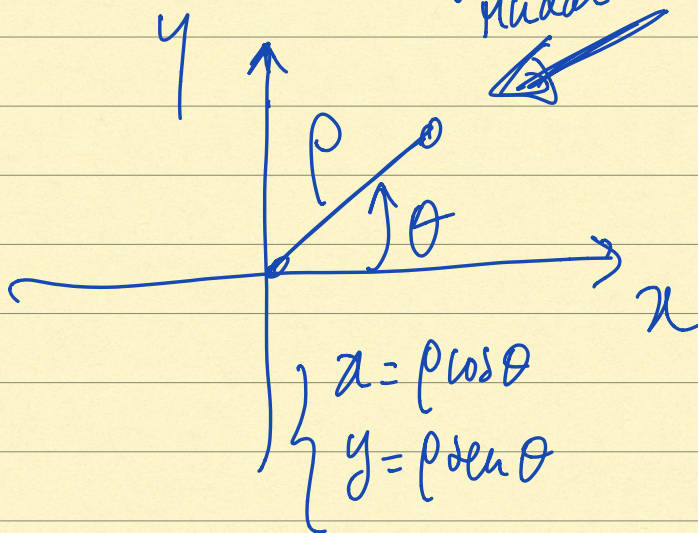 y
ρ
θ
x
x = ρ cos θ
y = ρ sen θ